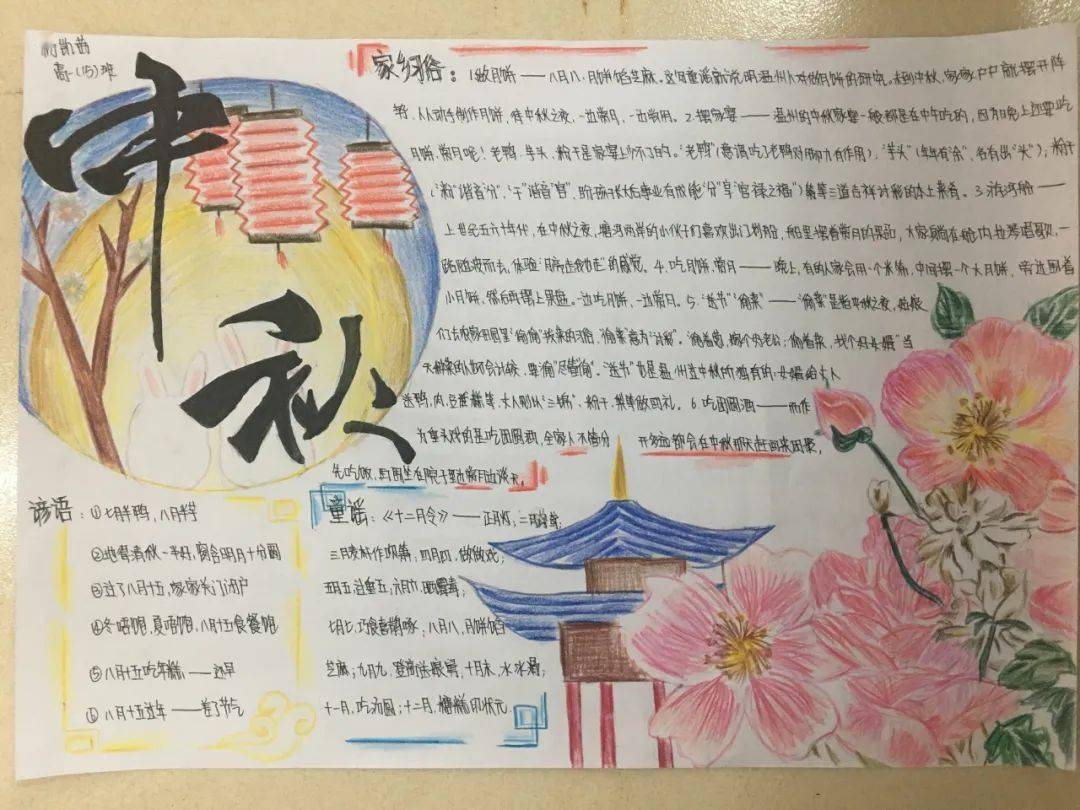 高一(15)班
中秋
家乡习俗：1.做月饼——八月八，月饼馅芝麻。这句童谣就说明温州人对做月饼的研究。未到中秋，家家户户就摆开阵
势，人人动手制作月饼，待中秋之夜，一边赏月，一边尝用。2.摆家宴——温州的中秋家宴一般都是在中午吃的，因为晚上还要吃
月饼，赏月呢！老鸭、芋头、粉干是家宴上少不了的。“老鸭”(意谓吃了老鸭对脚力有作用)，“芋头”(年年有“余”，名有出“头”)；粉干
(“粉”谐音“分”，“干”谐音“官”，盼孩子长大后事业有成能“分”享“官禄之福”)等三道吉祥讨彩的本土菜肴。3.游河船——
上世纪五六十年代，在中秋之夜，塘河两岸的小伙子们喜欢出门划船，船里摆着赏月的果品，大家躺在船内拉琴唱歌，一
路随波而去，体验“月亮走我也走”的感觉。4.吃月饼，赏月——晚上，有的人家会用一个米筛，中间摆一个大月饼，旁边围着
小月饼，然后再摆上果盘。一边吃月饼，一边赏月。5.“送节”“偷菜”——“偷菜”是指中秋之夜，姑娘
们去农家田园里“偷偷”找来的习俗，“偷菜”意为“讨彩”。“偷着葱，嫁个好老公；偷着菜，找个好女婿”当
天被偷的人都不会计较，要“偷”尽管“偷”。“送节”也是温州在中秋所独有的：女婿给丈人
送鸭，肉，豆蓬糕等，丈人则以“三锦”、粉干、梨等做回礼。6.吃团圆酒——而作
为重头戏的是吃团圆酒，全家人不管分开多远都会在中秋那天赶回来团聚，
先吃饭，再围坐在院子里边赏月边谈天。
谚语：①七月半鸭，八月半芋
②地得清秋一半好，窗含明月十分圆
③过了八月十五，家家关门闭户
④冬唔饱，夏唔饱，八月十五食餐饱
⑤八月十五吃年糕——还早
⑥八月十五过年——差了节气
童谣：《十二月令》——正月灯；二月鹞；
三月麦秆作吹箫，四月四，做做戏；
五月五，过重五；六月六，晒霉毒；
七月七，巧食喜鹊啄；八月八，月饼馅
芝麻；九月九，登高送娘舅，十月末，水冰凝；
十一月，吃汤圆；十二月，糖糕印状元